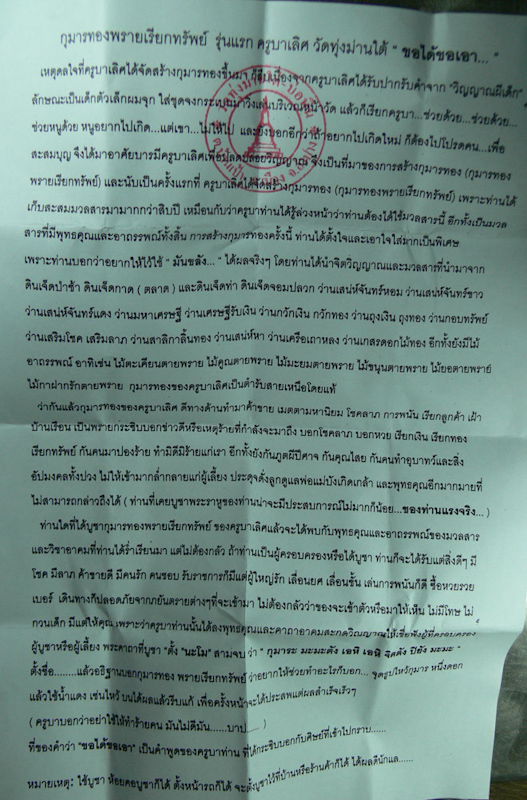 กุมารทองพรายเรียกทรัพย์ รุ่นแรก ครูบาเลิศ วัดทุ่งม่านใต้ " ขอได้ขอเอา... "
เหตุดลใจที่ครูบาเลิศได้จัดสร้างกุมารทองขึ้นมา ก็สืบเนื่องจากครูบาเลิศได้รับปากรับคำจาก "วิญญาณผีเด็ก"
ลักษณะเป็นเด็กตัวเล็กผมจุก ใส่ชุดจงกระเบนมาวิ่งเล่นบริเวณหน้าวัด แล้วก็เรียกครูบา...ช่วยด้วย...ช่วยด้วย...
ช่วยหนูด้วย หนูอยากไปเกิด...แต่เขา...ไม่ให้ไป และยังบอกอีกว่าถ้าอยากไปเกิดใหม่ ก็ต้องไปโปรดคน...เพื่อ
สะสมบุญ จึงได้มาอาศัยบารมีครูบาเลิศเพื่อปลดปล่อยวิญญาณ จึงเป็นที่มาของการสร้างกุมารทอง (กุมารทอง
พรายเรียกทรัพย์) และนับเป็นครั้งแรกที่ ครูบาเลิศได้จัดสร้างกุมารทอง (กุมารทองพรายเรียกทรัพย์) เพราะท่านได้
เก็บสะสมมวลสารมามากกว่าสิบปี เหมือนกับว่าครูบาท่านได้รู้ล่วงหน้าว่าท่านต้องได้ใช้มวลสารนี้ อีกทั้งเป็นมวล
สารที่มีพุทธคุณและอาถรรพณ์ทั้งสิ้น การสร้างกุมารทองครั้งนี้ ท่านได้ตั้งใจและเอาใจใส่มากเป็นพิเศษ
เพราะท่านบอกว่าอยากให้ไว้ใช้ " มันขลัง... " ได้ผลจริงๆ โดยท่านได้นำจิตวิญญาณและมวลสารที่นำมาจาก
ดินเจ็ดป่าช้า ดินเจ็ดกาด ( ตลาด ) และดินเจ็ดท่า ดินเจ็ดจอมปลวก ว่านเสน่ห์จันทร์หอม ว่านเสน่ห์จันทร์ขาว
ว่านเสน่ห์จันทร์แดง ว่านมหาเศรษฐี ว่านเศรษฐีรับเงิน ว่านกวักเงิน กวักทอง ว่านถุงเงิน ถุงทอง ว่านกอบทรัพย์
ว่านเสริมโชค เสริมลาภ ว่านสาลิกาลิ้นทอง ว่านเสน่ห์หา ว่านเครือเถาหลง ว่านเกสรดอกไม้ทอง อีกทั้งยังมีไม้
อาถรรพณ์ อาทิเช่น ไม้ตะเคียนตายพราย ไม้คูณตายพราย ไม้มะยมตายพราย ไม้ขนุนตายพราย ไม้ยอตายพราย
ไม้กาฝากรักตายพราย กุมารทองของครูบาเลิศเป็นตำรับสายเหนือโดยแท้
ว่ากันแล้วกุมารทองของครูบาเลิศ ดีทางด้านทำมาค้าขาย เมตตามหานิยม โชคลาภ การพนัน เรียกลูกค้า เฝ้า
บ้านเรือน เป็นพรายกระซิบบอกข่าวดีหรือเหตุร้ายที่กำลังจะมาถึง บอกโชคลาภ บอกหวย เรียกเงิน เรียกทอง
เรียกทรัพย์ กันคนมาปองร้าย ทำมิดีมิร้ายแก่เรา อีกทั้งยังกันภูตผีปีศาจ กันคุณไสย กันคนทำอุบาทว์และสิ่ง
อัปมงคลทั้งปวง ไม่ให้เข้ามากล้ำกลายแก่ผู้เลี้ยง ประดุจดั่งลูกดูแลพ่อแม่บังเกิดเกล้า และพุทธคุณอีกมากมายที่
ไม่สามารถกล่าวถึงได้ ( ท่านที่เคยบูชาพระราหูของท่านน่าจะมีประสบการณ์ไม่มากก็น้อย...ของท่านแรงจริง... )
ท่านใดที่ได้บูชากุมารทองพรายเรียกทรัพย์ ของครูบาเลิศแล้วจะได้พบกับพุทธคุณและอาถรรพณ์ของมวลสาร
และวิชาอาคมที่ท่านได้ร่ำเรียนมา แต่ไม่ต้องกลัว ถ้าท่านเป็นผู้ครอบครองหรือได้บูชา ท่านก็จะได้รับแต่สิ่งดีๆ มี
โชค มีลาภ ค้าขายดี มีคนรัก คนชอบ รับราชการก็มีแต่ผู้ใหญ่รัก เลื่อนยศ เลื่อนขั้น เล่นการพนันก็ดี ซื้อหวยรวย
เบอร์ เดินทางก็ปลอดภัยจากภยันตรายต่างๆที่จะเข้ามา ไม่ต้องกลัวว่าของจะเข้าตัวหรือมาให้เห็น ไม่มีโทษ ไม่
กวนเด็ก มีแต่ให้คุณ เพราะว่าครูบาท่านนั้นได้ลงพุทธคุณและคาถาอาคมสะกดวิญญาณให้เชื่อฟังผู้ที่ครอบครอง
ผู้บูชาหรือผู้เลี้ยง พระคาถาที่บูชา "ตั้ง "นะโม" สามจบ ว่า " กุมาระ มะมะตัง เอหิ เอหิ จิตตัง ปิยัง มะมะ "
ตั้งชื่อ........แล้วอธิฐานบอกกุมารทอง พรายเรียกทรัพย์ ว่าอยากให้ช่วยทำอะไรก็บอก... จุดรูปไหว้กุมาร หนึ่งดอก
แล้วใช้น้ำแดง เซ่นไหว้ บนได้ผลแล้วรีบแก้ เพื่อครั้งหน้าจะได้ประสพแต่ผลสำเร็จเร็วๆ
( ครูบาบอกว่าอย่าใช้ให้ทำร้ายคน มันไม่ดีมัน......บาป...... )
ที่ของคำว่า "ขอได้ขอเอา" เป็นคำพูดของครูบาท่าน ที่ได้กระซิบบอกกับศิษย์ที่เข้าไปกราบ......
หมายเหตุ: ใช้บูชา ห้อยคอบูชาก็ได้ ตั้งหน้ารถก็ได้ จะตั้งบูชาไว้ที่บ้านหรือร้านค้าก็ได้ ได้ผลดีนักแล......